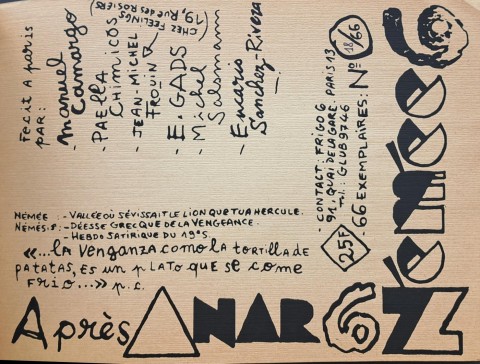 Fecit A PARIS
PAR:
- Manuel
Camargo
- PAELLA
CHIMICOS
- JEAN-MICHEL
FROUIN
(CHEZ FEELINGS
19, RUE DES ROSIERS)
- E. GADS
- Michel
Salamann
- Encaris
Sanchez-Rivera
- CONTACT: FRIGO 6
91, QUAI DE LA GARE. PARIS 13
GLUB 9746
- 66 EXEMPLAIRES: Nº 18/66
25F
NÉMÉE : - VALLÉE OÙ SÉVISSAIT LE LION QUE TUA HERCULE.
NÉMÉS.S : - DÉESSE GRECQUE DE LA VENGEANCE.
- HEBDO SATIRIQUE DU 19ºS
«...LA VENGANZA COMO LA TORTILLA DE
PATATAS, ES UN PLATO QUE SE COME
FRIO...» p.c.
Après ANAR6Z
Némée6